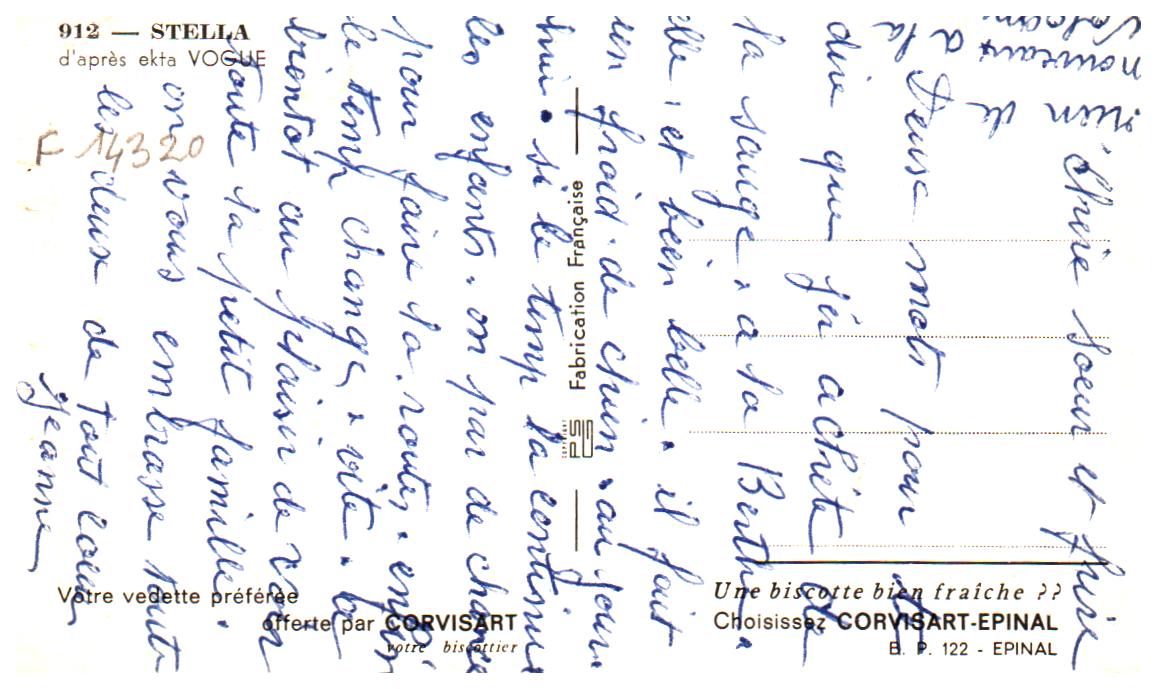 912 — STELLA
d'après ekta VOGUE
F 14320
rien de
nouveaux a la
Chère soeur et frère
Deuse mots pour te
dire que j'ai achète de
la sauge . a la Berthe .
elle . et bien belle . il fait
un froid . de chien . au jour
hui . si le temp sa continue
les enfants . on pas de chance
pour faire la . route . enfin
le temp change . vite . a
bientot au plaisir de voir
toute sa petit famille .
on vous embrasse toute
les deux de tout coeur
Jeanne
Fabrication Française
COPYRIGHT PS
Votre vedette préférée
offerte par CORVISART
votre biscottier
Une biscotte bien fraîche ??
Choisissez CORVISART-EPINAL
B. P. 122 - EPINAL